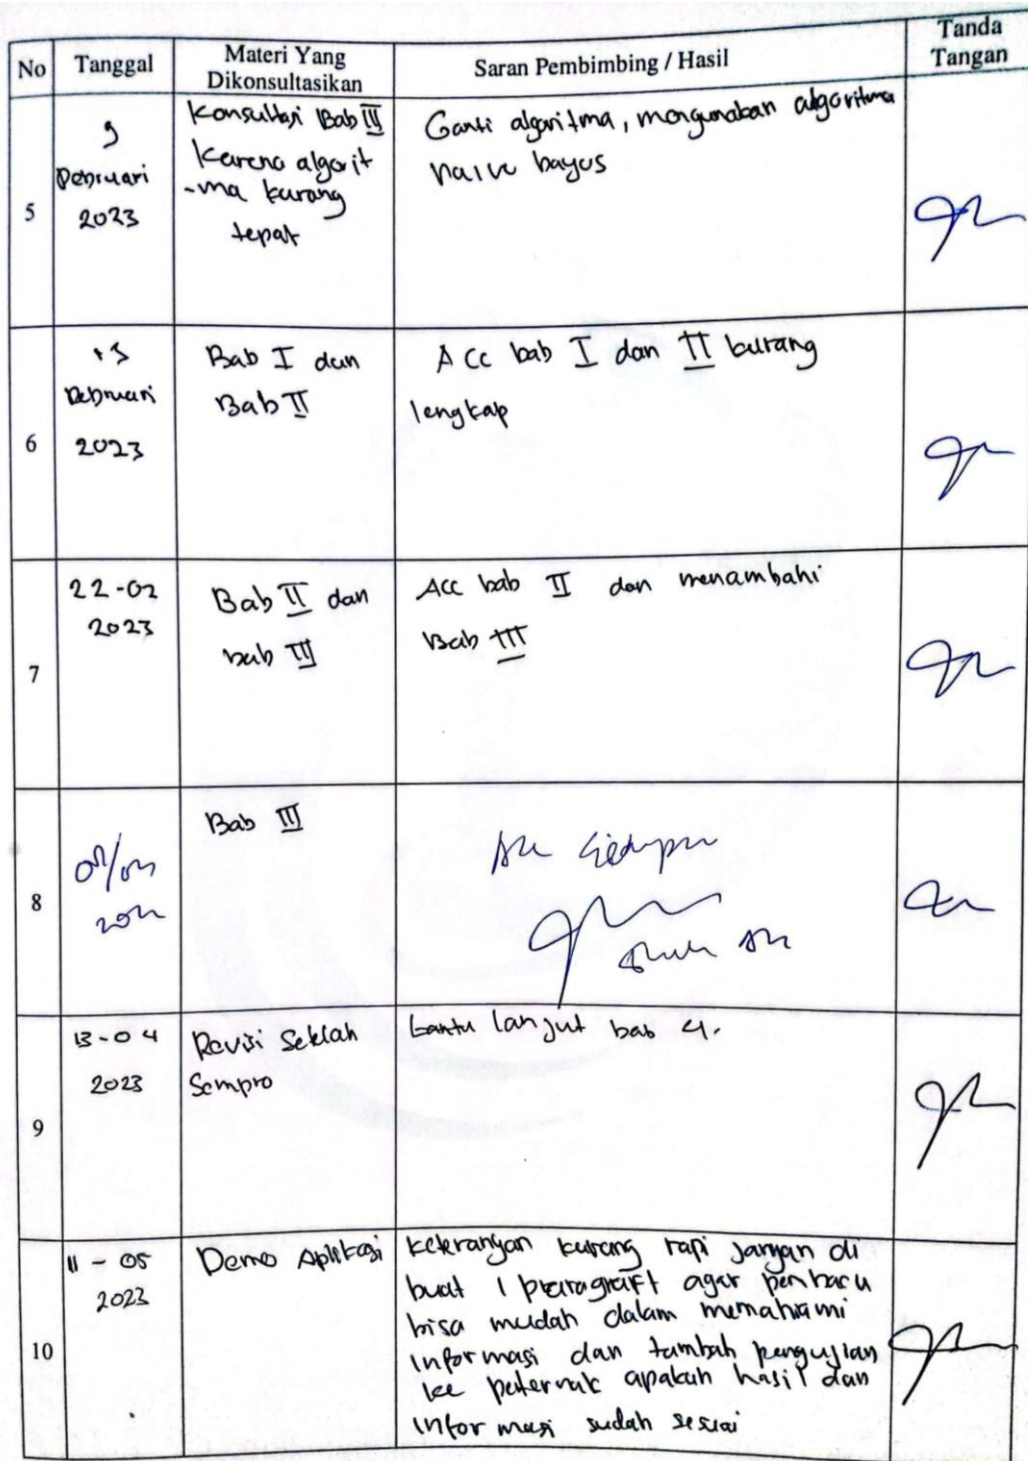 No Tanggal Materi Yang Dikonsultasikan Saran Pembimbing / Hasil Tanda Tangan
5
9
Pebruari
2023
Konsultasi Bab III
Karena algorit
-ma kurang
tepat
Ganti algoritma, mengunakan algoritma
naive bayes
6
13
Pebruari
2023
Bab I dan
Bab II
Acc bab I dan II kurang
lengkap
7
22-02
2023
Bab II dan
bab III
Acc bab II dan menambahi
Bab III
8
Bab III
9
13-04
2023
Revisi Setelah
Sempro
lanjut bab 4.
10
11 - 05
2023
Demo Aplikasi
keterangan kurang rapi jangan di
buat 1 praragraft agar pembaca
bisa mudah dalam memahami
informasi dan tambah pengujian
ke peternak apakah hasil dan
informasi sudah sesuai